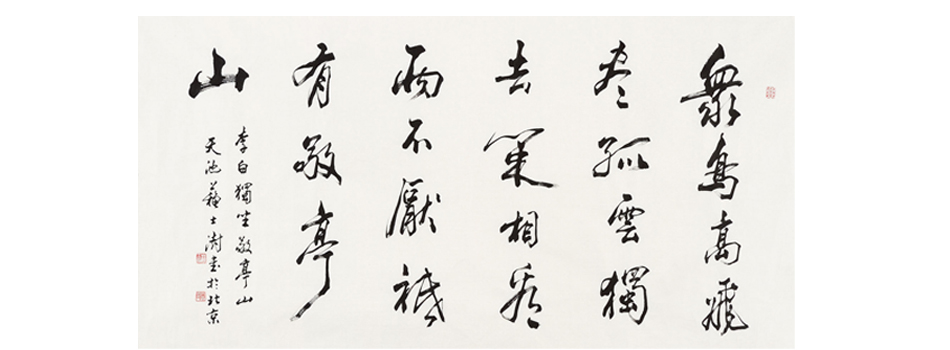 衆鳥高飛
盡孤雲獨
去閑相看
兩不厭祗
有敬亭
山
李白獨坐敬亭山
天池蘇士澍書於北京